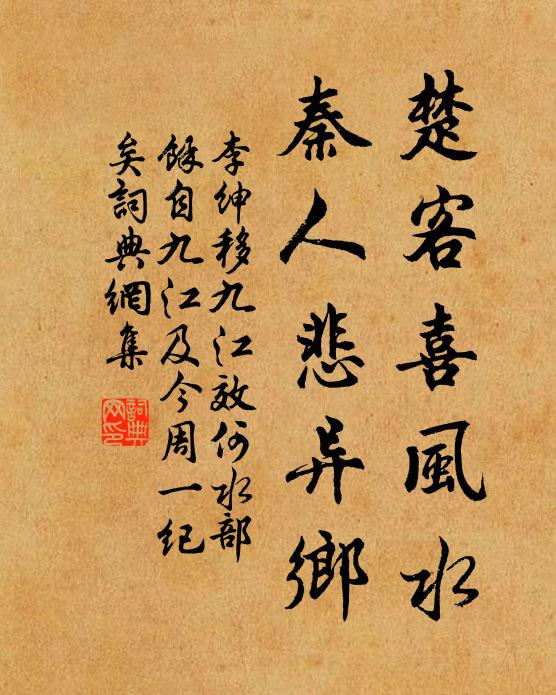 楚客喜風水
秦人悲异鄉
李绅移九江效何水部
餘自九江及今周一纪
矣詞典網集
詞典網印